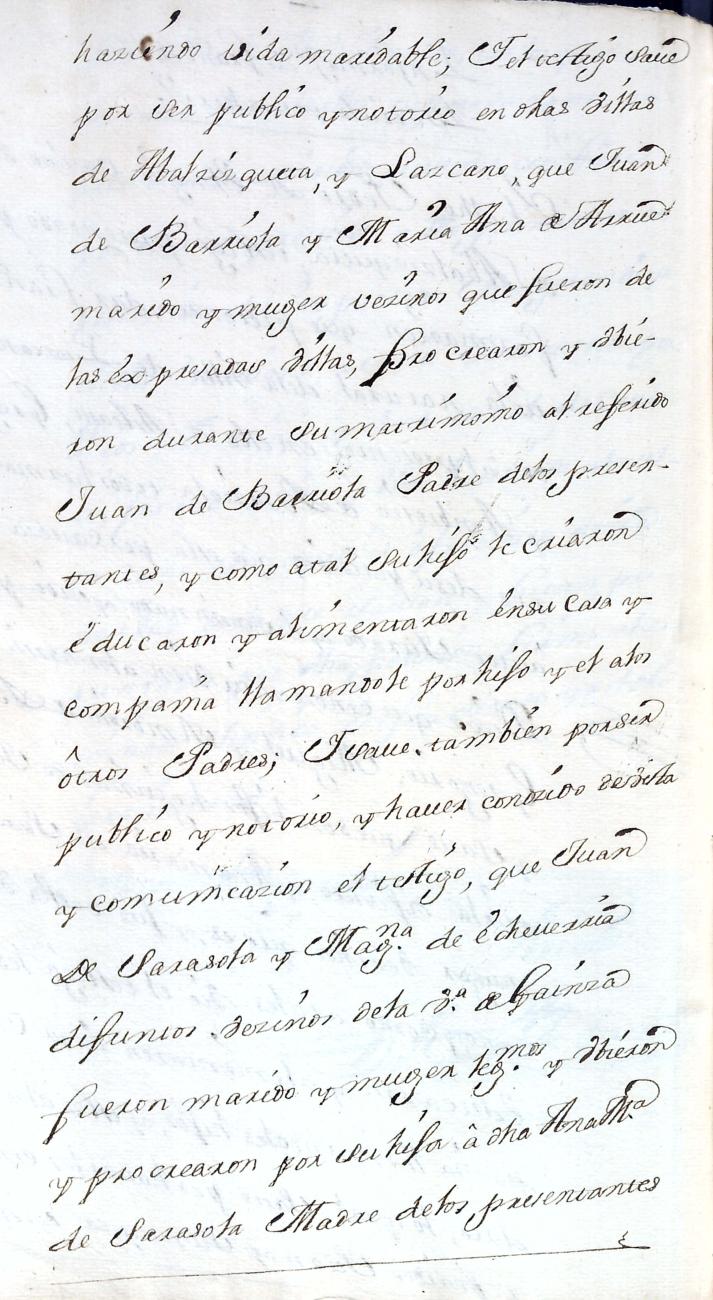 haziendo vida maridable; Y el testigo save
por ser publico y notorio en dhas Villas
de Abalzizqueta, y Lazcano, que Juan
de Barriola y Maria Ana de Arrue
marido y muger vezinos que fueron de
las expresadas Villas, procrearon y vbie-
ron durante su matrimonio al referido
Juan de Barriola Padre delos presen-
tantes, y como atal su hiso le criaron
educaron y alimentaron ensu casa y
compania llamandole por hiso y el alos
ôtros Padres; Y save tambien por ser
publico y notorio, y haver conozido de vista
y comunicazion el testigo, que Juan
de Sarasola y Mag.na de Echeverria
difuntos vezinos dela V.a de Gainza
fueron marido y muger leg.mos y vbieron
y procrearon por su hisa â dha Ana M.a
de Sarasola Madre delos presentantes